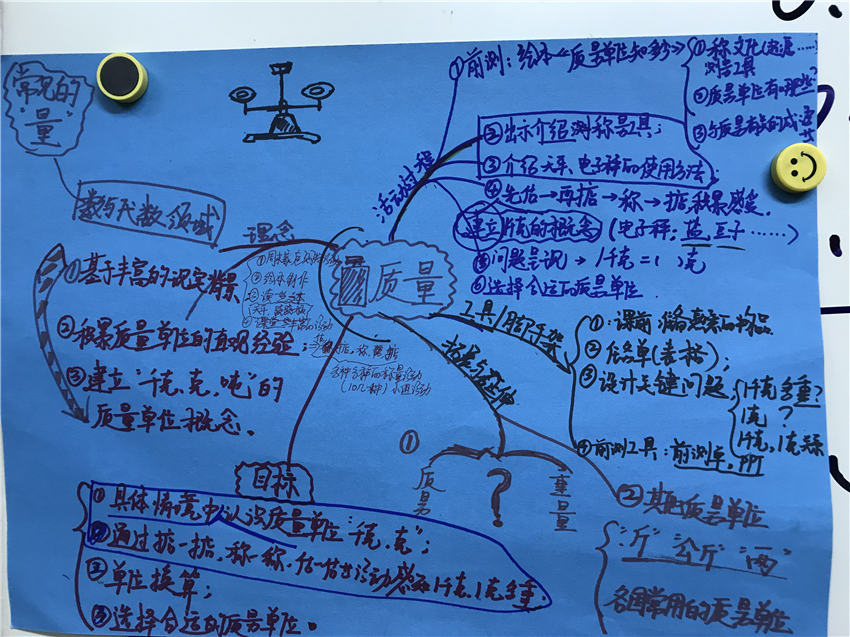 常见的
"量"
数与代数领域
理念
①基于丰富的识定背景
②积累质量单位的直观经验；
③建立"千克，克，吨"的
质量单位概念。
质量
活动过程
①前测：绘本《质量单位知多少》
①称文化(起源……)
测量工具
②质量单位有哪些？
③与质量有关的成语
②出示介绍测称量工具；
③介绍天平、电子秤的使用方法；
④先估→再掂→称→掂，积累感觉．
建立1千克的概念（电子秤：盐，豆子……）
问题意识→1千克=（ ）克
⑥选择合适的质量单位
②绘本制作
多种多样的称量活动
工具/脚手架
①：课前准备惠案的物品
②任务单(表格)；
③设计关键问题
1千克多重？
1克？
1千克，1克关系
④前测工具：前测单，PPT
拓展与延伸
①
质量
？
重量
②其他质量单位
"斤""公斤""两"
各国常用的质量单位
目标
①具体情境中认识质量单位"千克，克"；
②通过掂一掂，称一称，估一估等活动感知1千克，1克多重．
②单位换算；
③选择合适的质量单位。